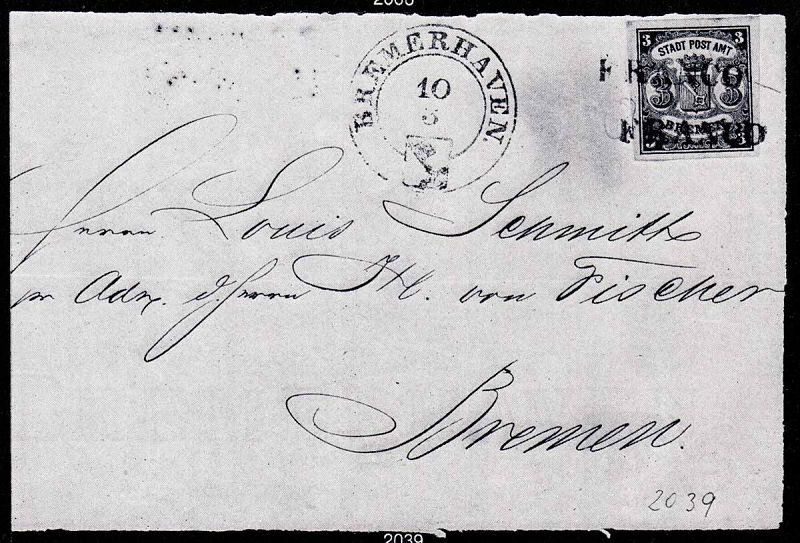 BREMERHAVEN.
10
3
3 3
STADT POST AMT
FRANCO
3 3
BREMEN
FRANCO
3 3
Herrn Louis Schmitt
pr Adr. d. Herrn H. von Fischer
Bremen.
2039
2039